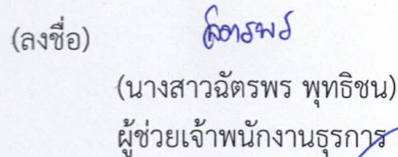 (ลงชื่อ) ฉัตรพร
(นางสาวฉัตรพร พุทธิชน)
ผู้ช่วยเจ้าพนักงานธุรการ